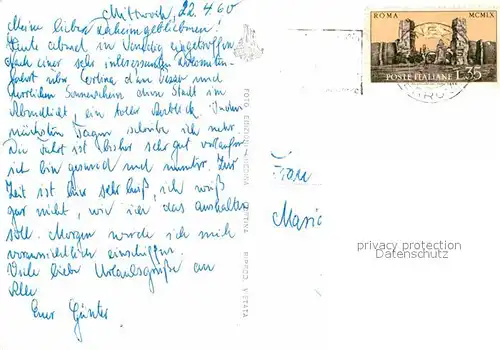 Mittwoch, 22.4.60
Meine lieben Daheimgebliebenen!
Heute abend in Venedig eingetroffen
nach einer sehr interessanten Dolomiten-
fahrt über Cortina und
herrlichen Sonnenschein die Stadt im
Abendlicht, ein toller Anblick. In den
nächsten Tagen schreibe ich mehr.
Die Fahrt ist bisher sehr gut verlaufen
ich bin gesund und munter. Zur
Zeit ist hier sehr heiß, ich weiß
gar nicht, wie ich das aushalten
soll. Morgen werde ich mich
voraussichtlich einschiffen.
Viele liebe Urlaubsgrüße an
Alle
Euer Günter
FOTO EDIZIONI
RIPROD. VIETATA
ROMA MCMLX
POSTE ITALIANE L.35
Frau
Maria
privacy protection
Datenschutz